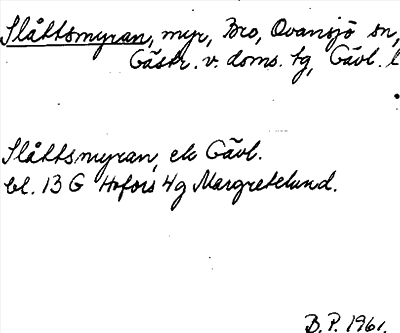 Slåttsmyran, myr, Bro, Ovansjö sn,
Gästr. v. doms. tg, Gävl. l
Slåttsmyran, ek Gävl.
bl. 13 G Hofors 4g Margretelund.
B.P. 1961.